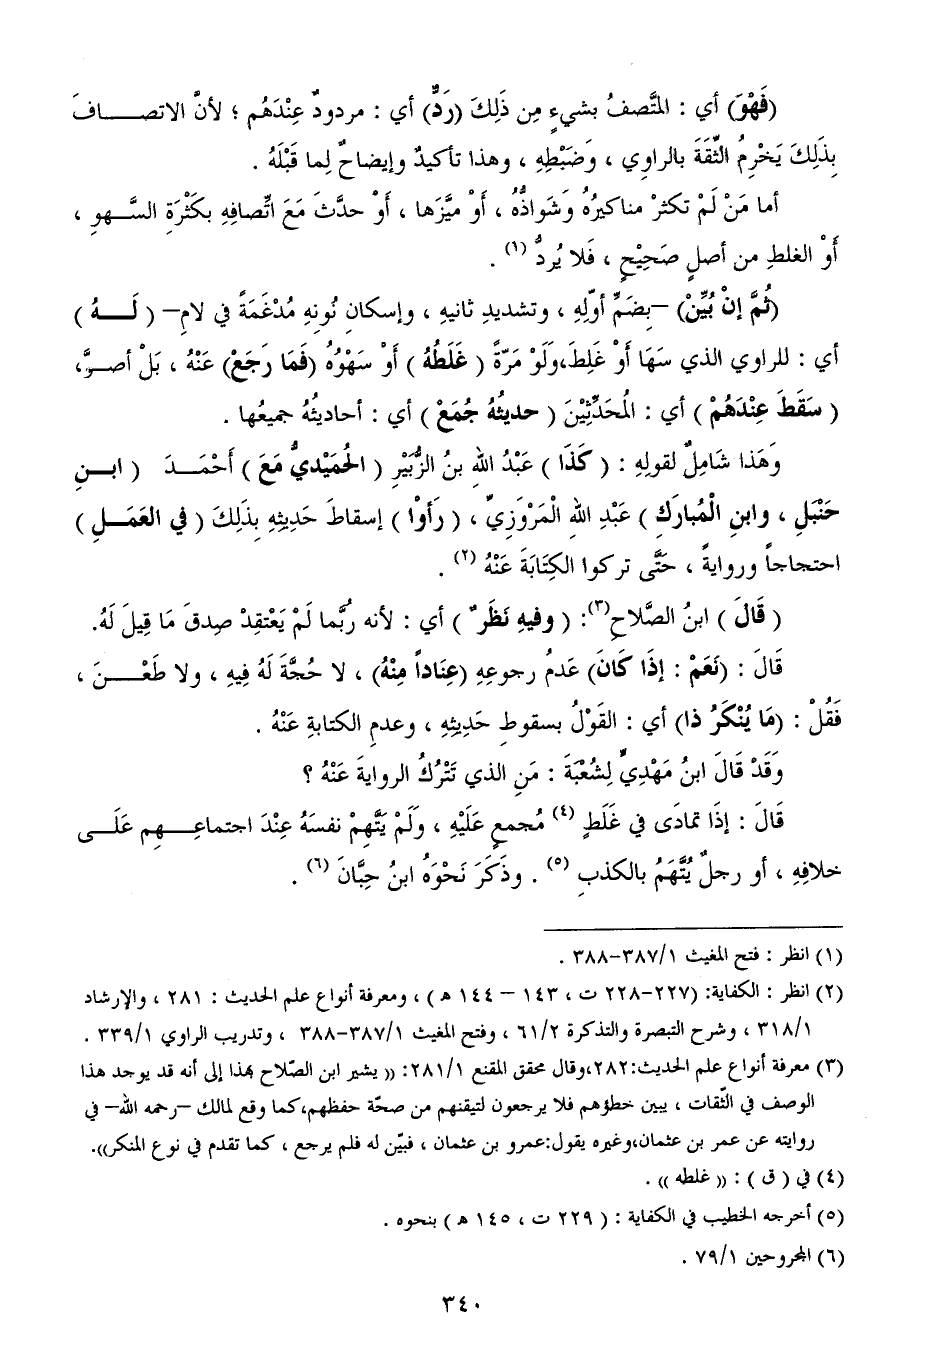 (فَهْوَ) أي : المتَّصفُ بشيءٍ مِن ذَلِكَ (رَدٌّ) أي : مردودٌ عِنْدَهُم ؛ لأنَّ الاتصافَ
بِذَلِكَ يَخْرِمُ الثِّقَةَ بالراوي ، وَضَبْطِهِ ، وهذا تأكيدٌ وإيضاحٌ لِما قَبْلَهُ .
أما مَنْ لَمْ تكثرْ مناكيرُهُ وَشَواذُّهُ ، أَوْ ميَّزَها ، أَوْ حدَّثَ مَعَ اتِّصافِهِ بكَثْرَةِ السَّهوِ ،
أَوْ الغلطِ من أصلٍ صَحِيْحٍ ، فَلا يُردُّ (١) .
(ثُمَّ إنْ بُيِّنْ) –بِضَمِّ أوَّلِهِ ، وتشديدِ ثانيهِ ، وإسكانِ نُونِهِ مُدْغَمَةً في لامِ– ( لَهُ )
أي : للراوي الذي سَهَا أَوْ غَلِطَ،وَلَوْ مَرَّةً ( غَلَطُهُ ) أَوْ سَهْوُهُ (فَمَا رَجَعْ) عَنْهُ ، بَلْ أصرَّ،
( سَقَطَ عِنْدَهُمْ ) أي : المُحَدِّثِيْنَ ( حديثُهُ جُمَعْ ) أي : أحاديثُهُ جميعُها .
وَهَذا شَامِلٌ لقولِهِ : ( كَذَا ) عَبْدُ اللهِ بنُ الزُّبَيْرِ ( الحُمَيْديُّ مَعَ ) أَحْمَدَ ( ابنِ
حَنْبَلِ ، وابنِ الْمُبارَكِ ) عَبْدِ اللهِ الْمَرْوَزِيِّ ، ( رَأَوْا ) إسقاطَ حَدِيثِهِ بذَلِكَ ( في العَمَلِ )
احتجاجاً وروايةً ، حَتَّى تركوا الكِتَابَةَ عَنْهُ (٢) .
( قَالَ ) ابنُ الصَّلاحِ(٣): ( وفيهِ نَظَرٌ ) أي : لأنه رُبَّما لَمْ يَعْتَقِدْ صِدقَ مَا قِيلَ لَهُ.
قَالَ : (نَعَمْ : إذَا كَانَ) عَدمُ رجوعِهِ (عِنَاداً مِنْهُ) ، لا حُجَّةَ لَهُ فِيهِ ، ولا طَعْنَ ،
فَقُلْ : (مَا يُنْكَرُ ذا) أي : القَوْلُ بسقوطِ حَدِيثِهِ ، وعدمِ الكتابةِ عَنْهُ .
وَقَدْ قَالَ ابنُ مَهْديٍّ لِشُعْبَةَ : مَنِ الذي تَتْرُكُ الروايةَ عَنْهُ ؟
قَالَ : إذَا تمادَى في غَلَطٍ (٤) مُجمعٍ عَلَيْهِ ، وَلَمْ يَتَّهِمْ نفسَهُ عِنْدَ اجتماعِهِم عَلَى
خلافِهِ ، أو رجلٌ يُتَّهَمُ بالكذبِ (٥) . وذَكَرَ نَحْوَهُ ابنُ حِبَّانَ (٦) .
(١) انظر : فتح المغيث ٣٨٧/١-٣٨٨ .
(٢) انظر : الكفاية: (٢٢٧-٢٢٨ ت ، ١٤٣ – ١٤٤ ه‍) ، ومعرفة أنواع علم الحديث : ٢٨١ ، والإرشاد
٣١٨/١ ، وشرح التبصرة والتذكرة ٦١/٢ ، وفتح المغيث ٣٨٧/١-٣٨٨ ، وتدريب الراوي ٣٣٩/١ .
(٣) معرفة أنواع علم الحديث:٢٨٢،وقال محقق المقنع ٢٨١/١: (( يشير ابن الصّلاح بهذا إلى أنه قد يوجد هذا
الوصف في الثّقات ، يبين خطؤهم فلا يرجعون لتيقنهم من صحّة حفظهم،كما وقع لمالك –رحمه الله– في
روايته عن عمر بن عثمان،وغيره يقول:عمرو بن عثمان ، فبيّن له فلم يرجع ، كما تقدم في نوع المنكر)).
(٤) في ( ق ) : (( غلطه )) .
(٥) أخرجه الخطيب في الكفاية : ( ٢٢٩ ت ، ١٤٥ ه‍ ) بنحوه .
(٦) المجروحين ٧٩/١ .
٣٤٠